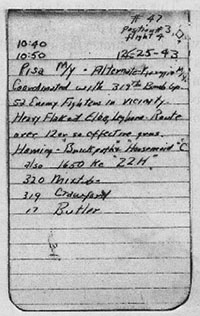 # 47
Position # 3
flight 4
10:40
10:50 12-25-43
Pisa M/y - Alternate
Coordinated with 319th Bomb Gp.
52 Enemy Fighters in vicinity
Heavy Flak at Elba, Leghorn. Route
over 12 or so effective guns.
Homing - "Household" "C"
also 1650 Kc "ZZH"
320 Mixture
319 Crawford
17 Butler